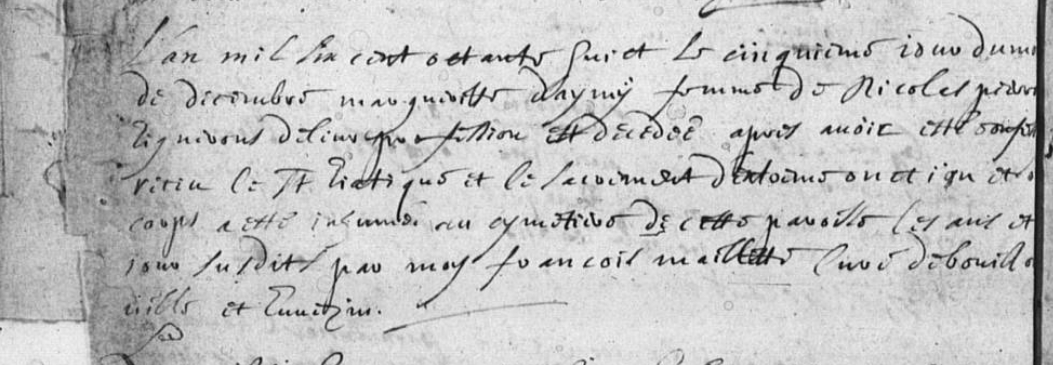 L'an mil six cent octante huict le cinquieme jour du moi
de decembre margueritte d'aymy femme de Nicolas pierre
vignerons de leur profession est decedeé apres avoir esté confes
receu le St Viatique et le sacrement d'extreme onction et
corps a esté inhumé au cymetiere de cette paroisse les ans et
jour susdits par moy francois maillette Curé de bouillo
ville et Euvezin.